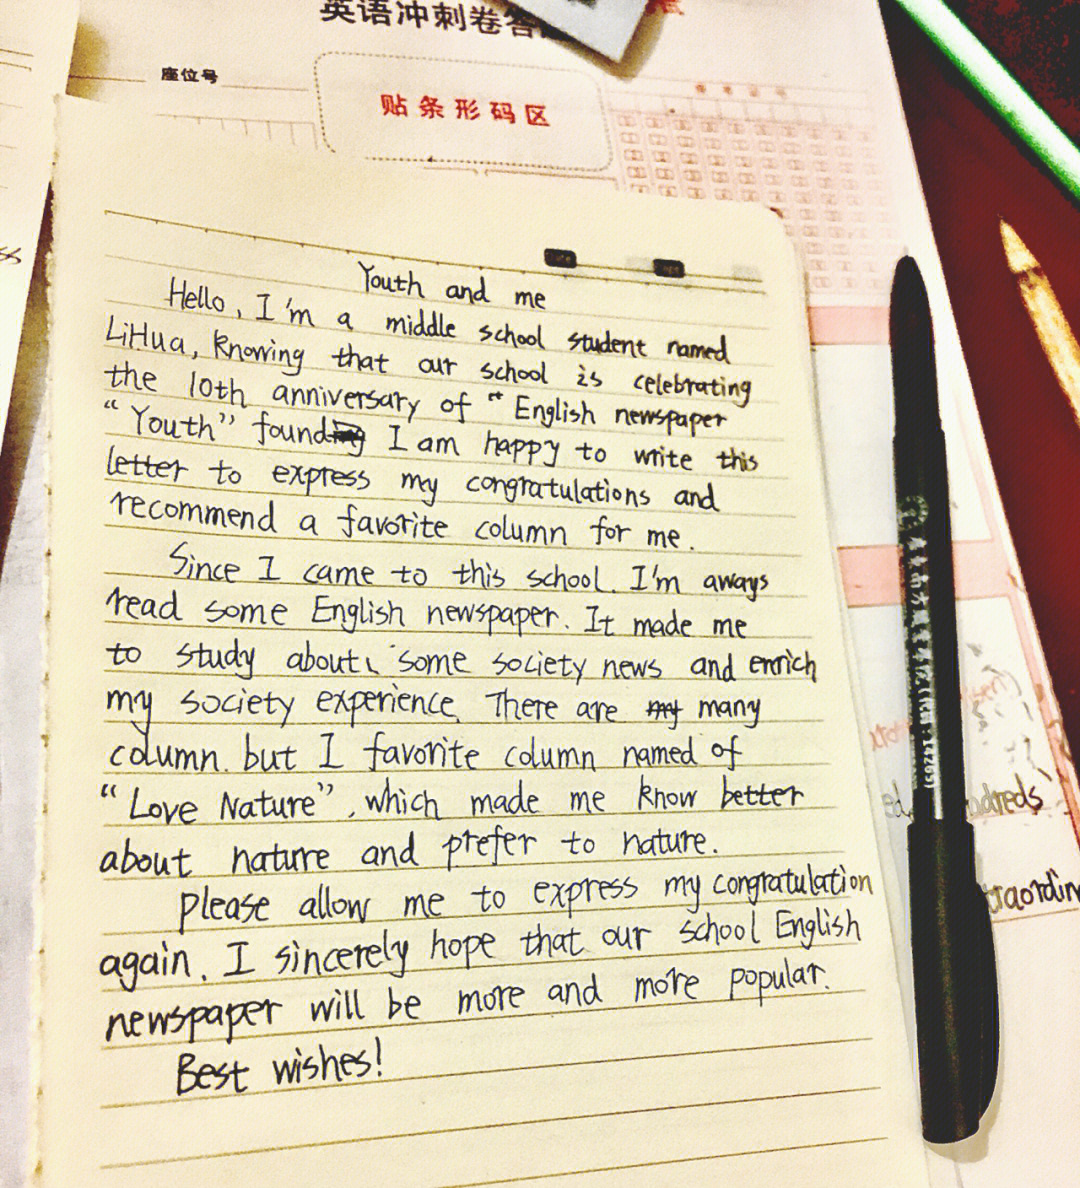 英语冲刺卷答
座位号
贴条形码区
Youth and me
Hello, I'm a middle school student named
LiHua, Knowing that our school is celebrating
the 10th anniversary of " English newspaper
"Youth" found I am happy to write this
letter to express my congratulations and
recommend a favorite column for me.
Since I came to this school. I'm aways
read some English newspaper. It made me
to study about some society news and enrich
my society experience. There are many
column. but I favorite column named of
"Love Nature", which made me know better
about nature and prefer to nature.
please allow me to express my congratulation
again. I sincerely hope that our school English
newspaper will be more and more popular.
Best wishes!